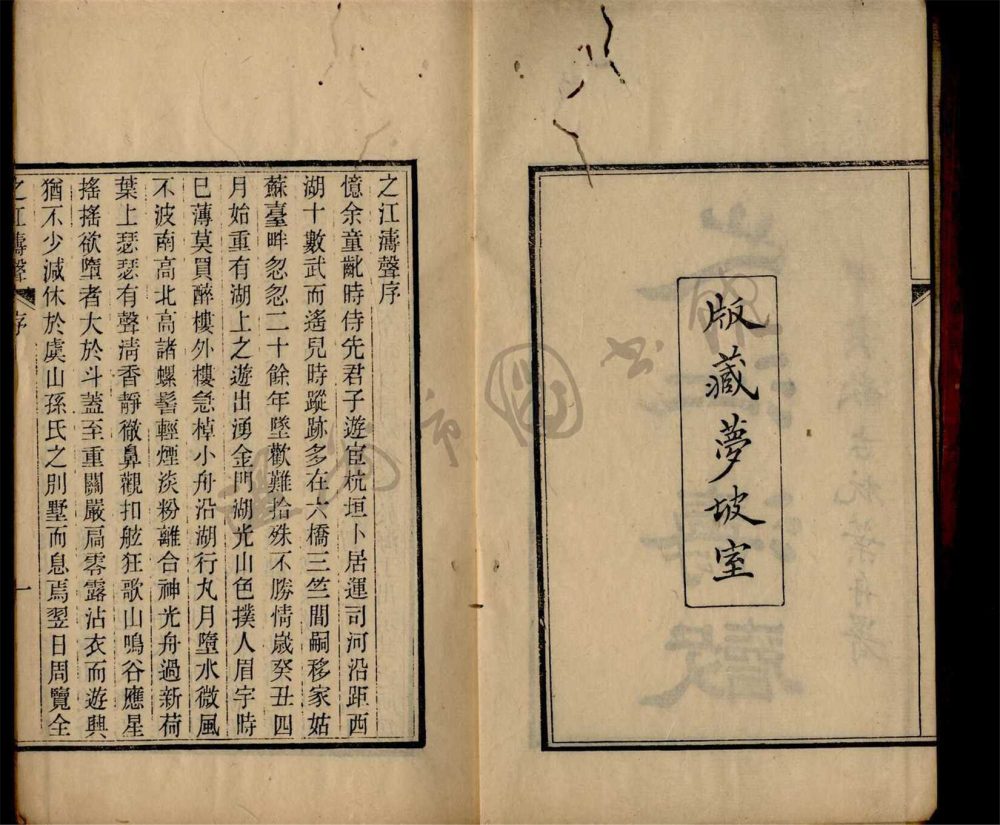 版藏夢坡室
之江濤聲序
憶余童齔時侍先君子遊宦杭垣卜居運司河沿距西
湖十數武而遙兒時蹤跡多在六橋三竺間嗣移家姑
蘇臺畔忽忽二十餘年墜歡難拾殊不勝情歲癸丑四
月始重有湖上之遊出湧金門湖光山色撲人眉宇時
已薄莫買醉樓外樓急棹小舟沿湖行丸月墮水微風
不波南高北高諸螺髻輕煙淡粉離合神光舟過新荷
葉上瑟瑟有聲清香靜徹鼻觀扣舷狂歌山鳴谷應星
搖搖欲墮者大於斗蓋至重關嚴扃零露沾衣而遊興
猶不少減休於虞山孫氏之別墅而息焉翌日周覽全
之江濤聲 序 一